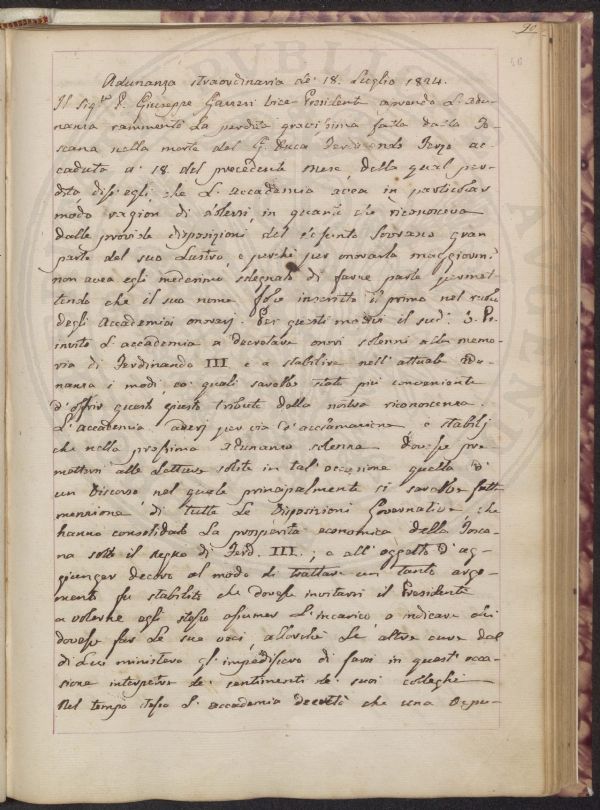 90
Adunanza straordinaria de' 18. Luglio 1824.
Il Sig.re P. Giuseppe Gazzeri Vice-Presidente aprendo l'Adu-
nanza rammentò la perdita gravissima fatta dalla To-
scana nella morte del G. Duca Ferdinando Terzo ac-
caduta a' 18 del precedente Mese, della qual per-
dita diss' egli che l'Accademia avea in particolar
modo ragion di dolersi, in quanto che riconosceva
dalle provvide disposizioni del defunto Sovrano gran
parte del suo lustro, e perchè per onorarla maggiorm.e
non avea egli medesimo sdegnato di farne parte permet-
tendo che il suo nome fosse inscritto il primo nel ruolo
degli Accademici onorarj. Per questi motivi il sud.o
invitò l'accademia a decretare onori solenni alla memo-
ria di Ferdinando III e a stabilire nell'attuale Adu-
nanza i modi co' quali sarebbe stato più conveniente
d'offrir questo giusto tributo della nostra riconoscenza.
L'accademia aderì per via d'acclamazione, e stabilì
che nella prossima Adunanza solenne dovesse pre-
mettersi alle letture solite in tal' occasione quella d'
un Discorso nel quale principalmente si sarebbe fatta
menzione di tutte le Disposizioni Governative, che
hanno consolidato la prosperità economica della Tosca-
na sotto il Regno di Ferd. III.; e all' oggetto d'ag-
giunger decoro al modo di trattare un tanto argo-
mento fu stabilito che dovesse invitarsi il Presidente
a volerne egli stesso assumer l'incarico o indicare chi
dovesse far le sue veci, allorchè le altre cure del
di Lui ministero gl' impedissero di farsi in quest' occa-
sione interpetre de' sentimenti de' suoi colleghi
Nel tempo stesso l'accademia decretò che una Depu-